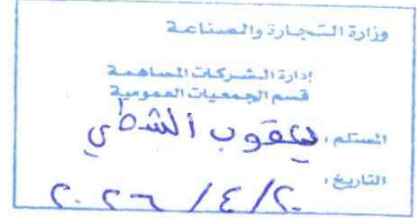 وزارة التجارة والصناعة
إدارة الشركات المساهمة
قسم الجمعيات العمومية
المستلم: يعقوب الشطي
التاريخ: ٢٠٢٦/٤/٢٠